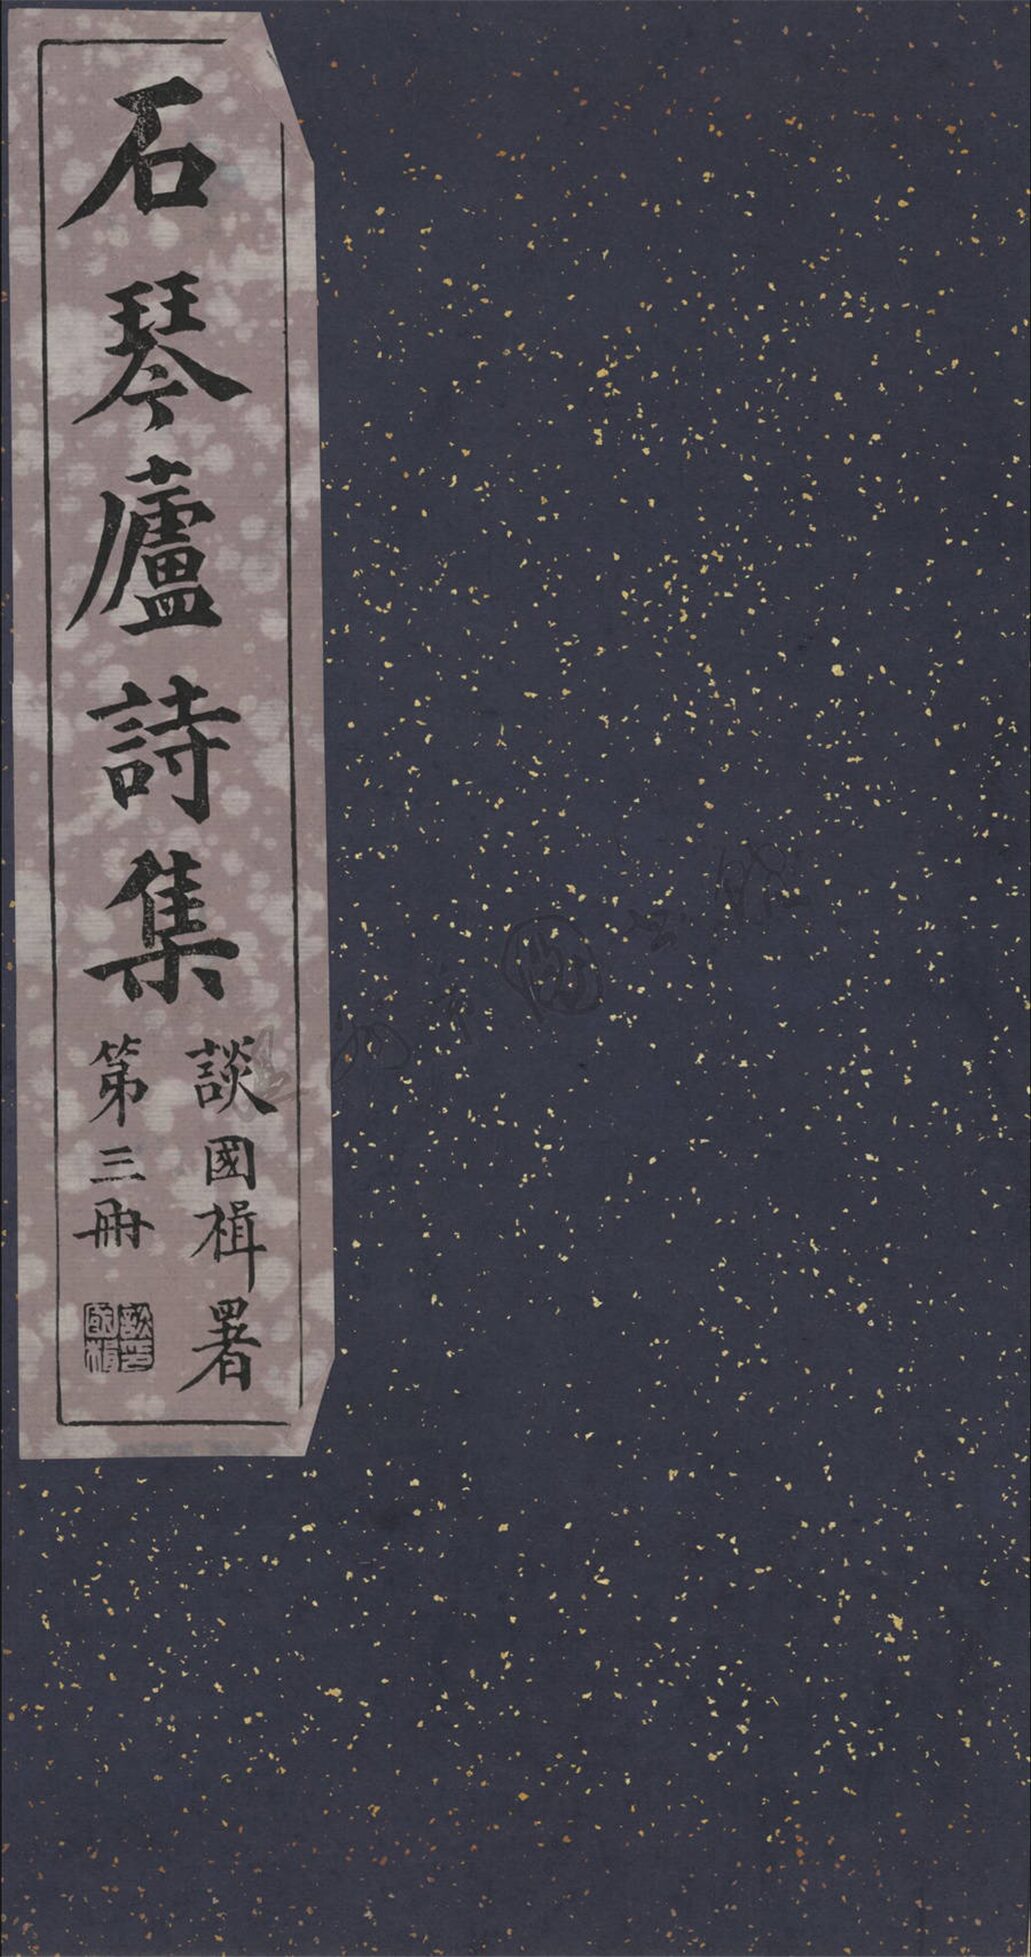 石琴廬詩集
談國楫署
第三冊